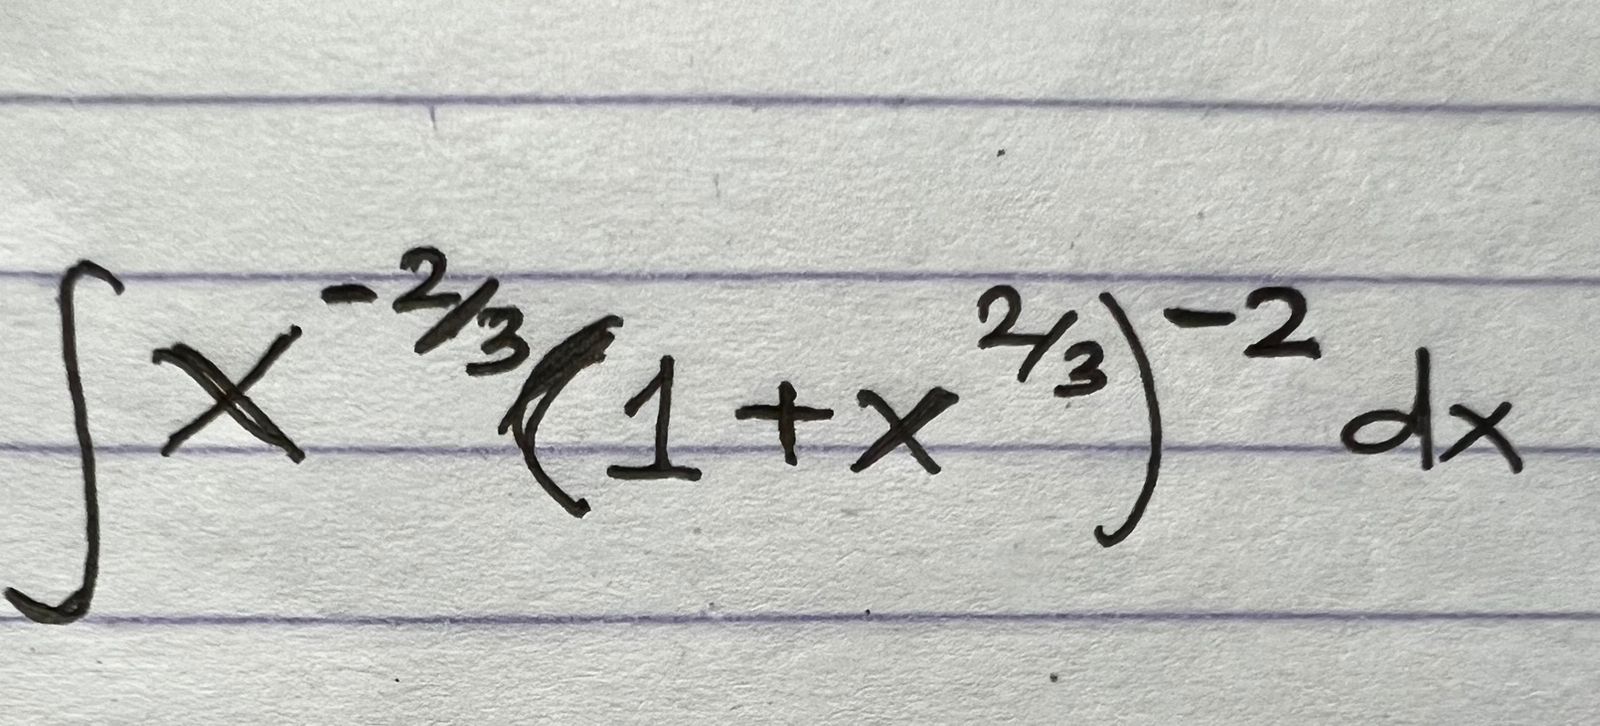 ∫ x^{-2/3} (1 + x^{2/3})^{-2} dx